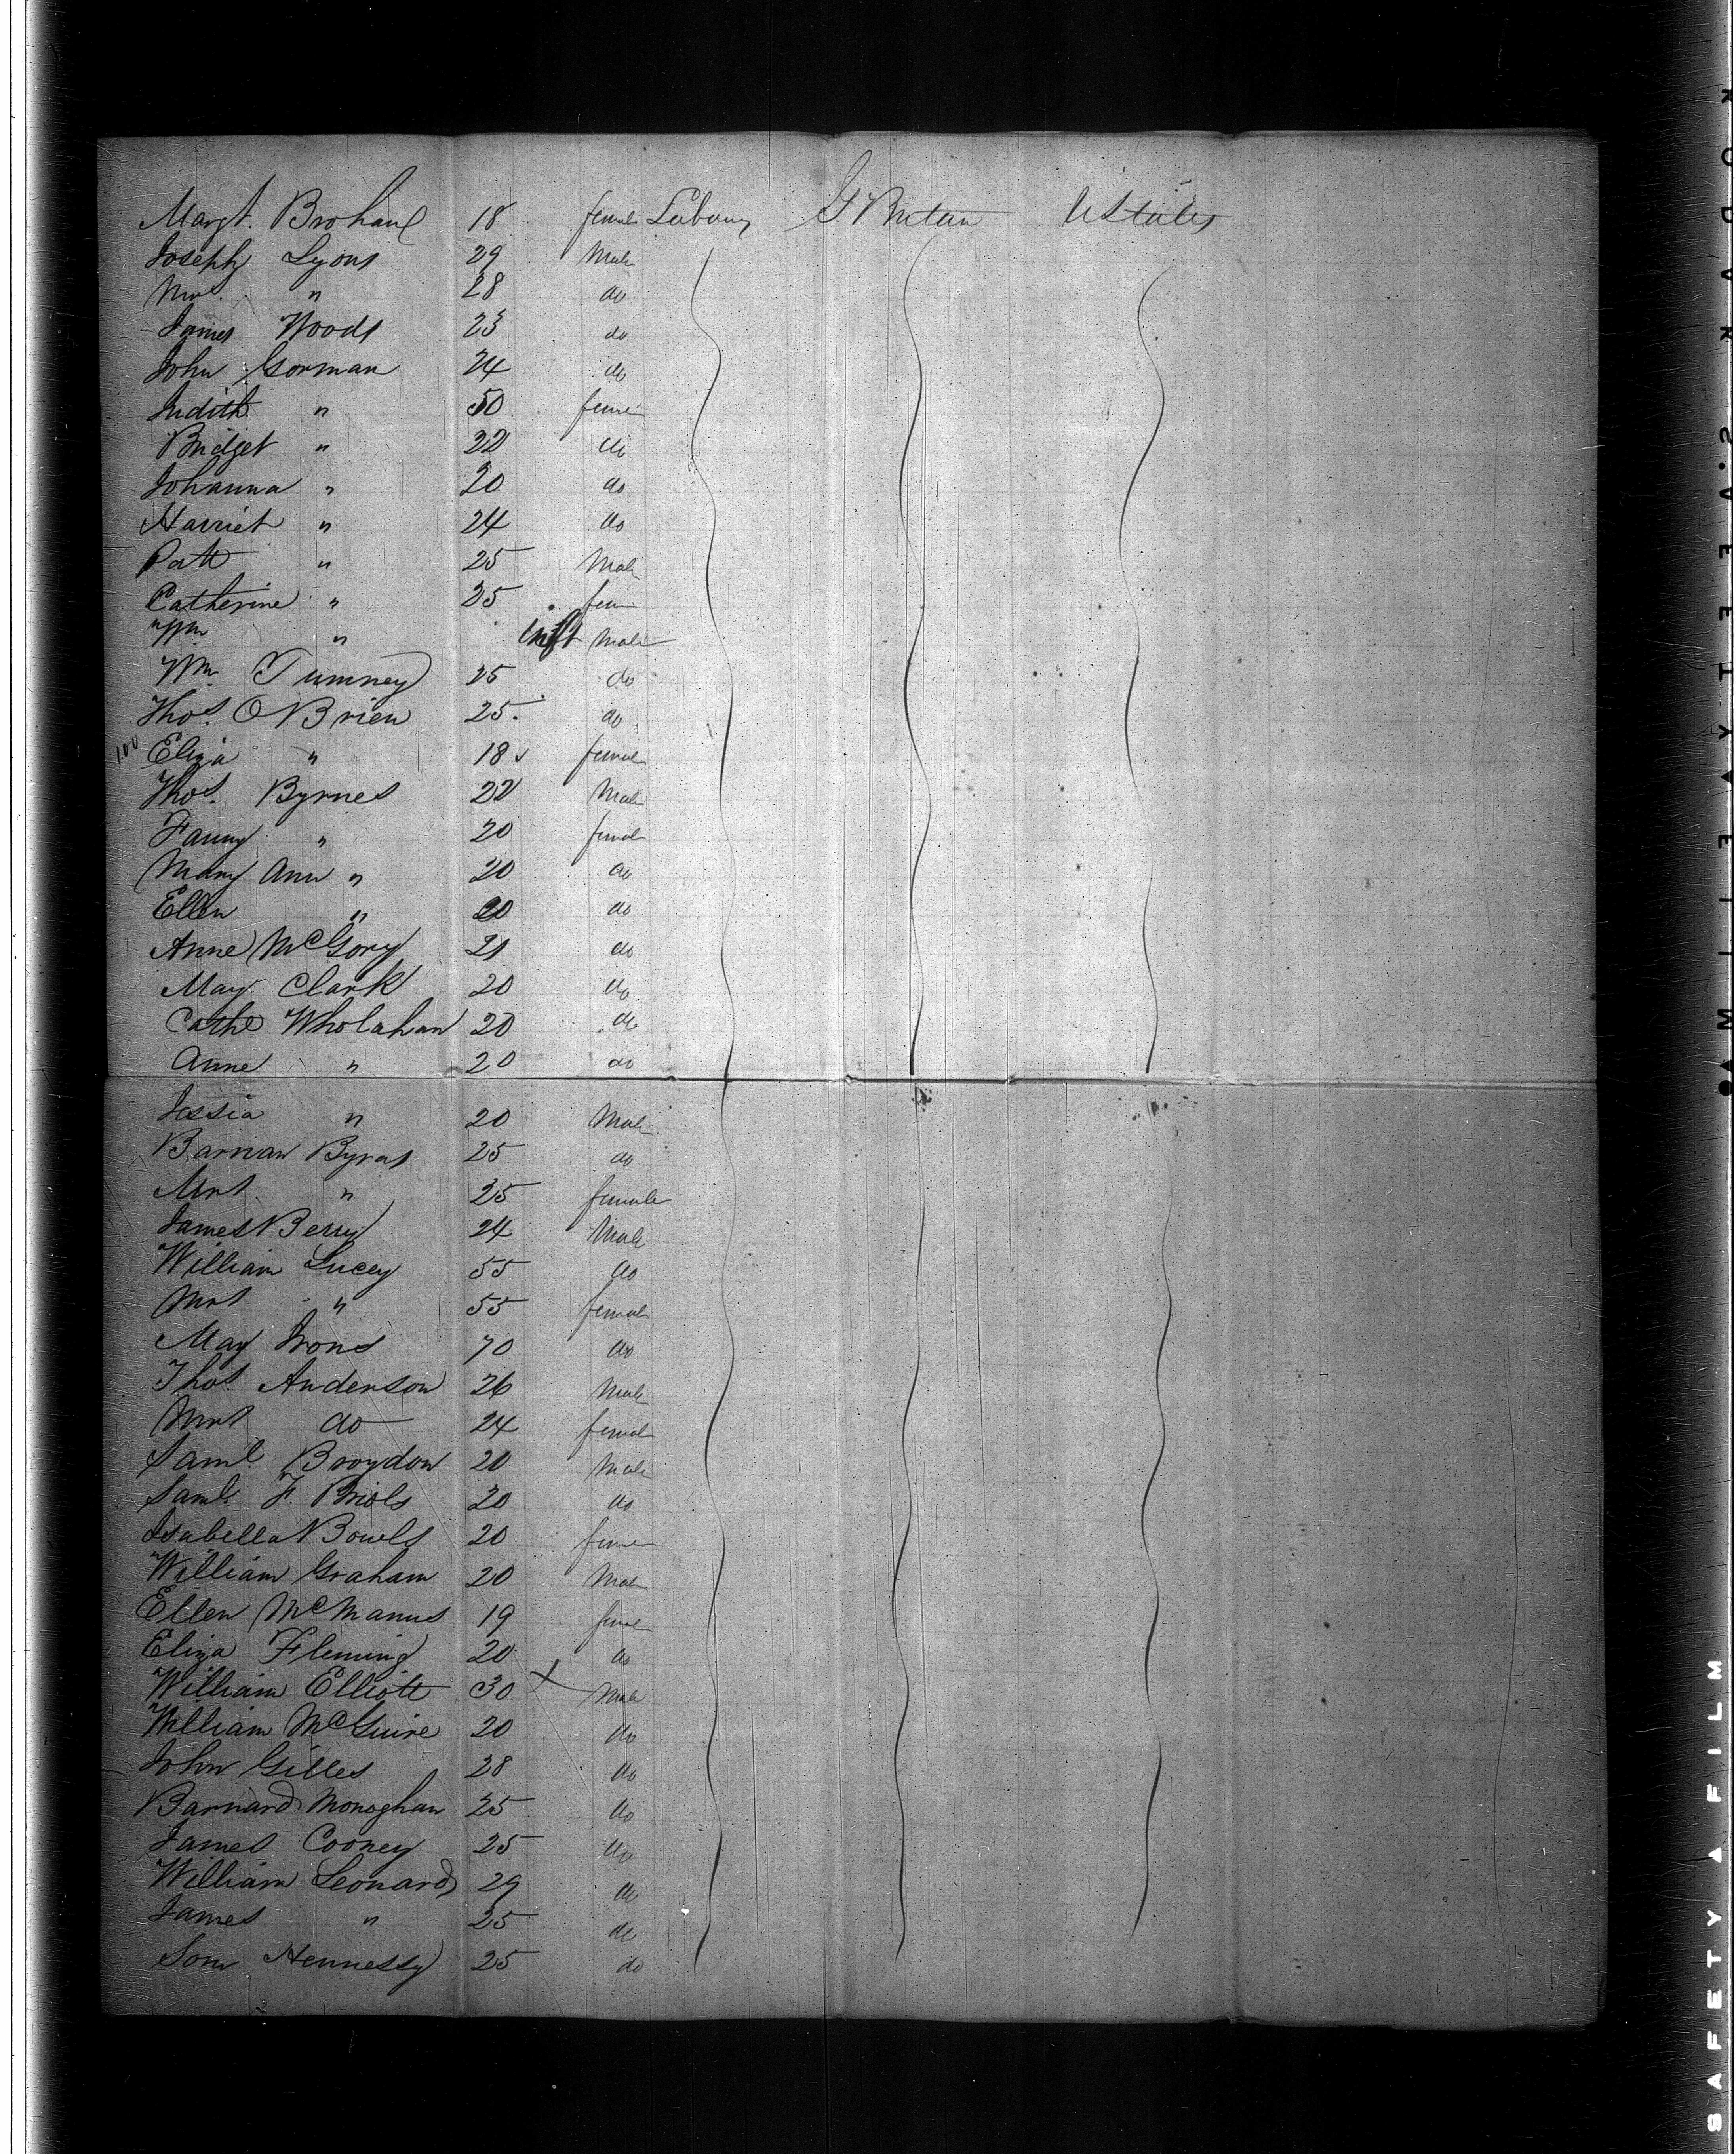 Margt. Brohaul 18 female Labourg G Britan UStates
Joseph Lyons 29 Male
Mrs. " 28 do
James Woods 23 do
John Gorman 24 do
Judith " 50 feme
Bridget " 22 do
Johanna " 20 do
Harriet " 24 do
Patt " 25 Male
Catherine " 25 fem
Wm " inft Male
Wm Tumney 25 do
Thos. O Brien 25. do
100 Eliza " 18 female
Thos. Byrnes 22 Male
Fanny " 20 female
Mary Ann " 20 do
Ellen " 20 do
Anne McGory 21 do
May Clark 20 do
Cathe Wholahan 20 do
Anne " 20 do
Jessia " 20 Male
Barnan Byrns 25 do
Mrs. " 25 female
James Berry 24 Male
William Lucey 55 do
Mrs " 55 female
May Irons 70 do
Thos. Anderson 26 Male
Mrs do 24 female
Saml. Broydon 20 Male
Saml. F. Briols 20 do
Isabella Bowls 20 feme
William Graham 20 Male
Ellen McManus 19 female
Eliza Fleming 20 do
William Elliott 30 X Male
William McGuire 20 do
John Gilles 28 do
Barnard Monoghan 25 do
James Cooney 25 do
William Leonard 29 do
James " 25 do
Som Hennessy 25 do
SAFETY FILM